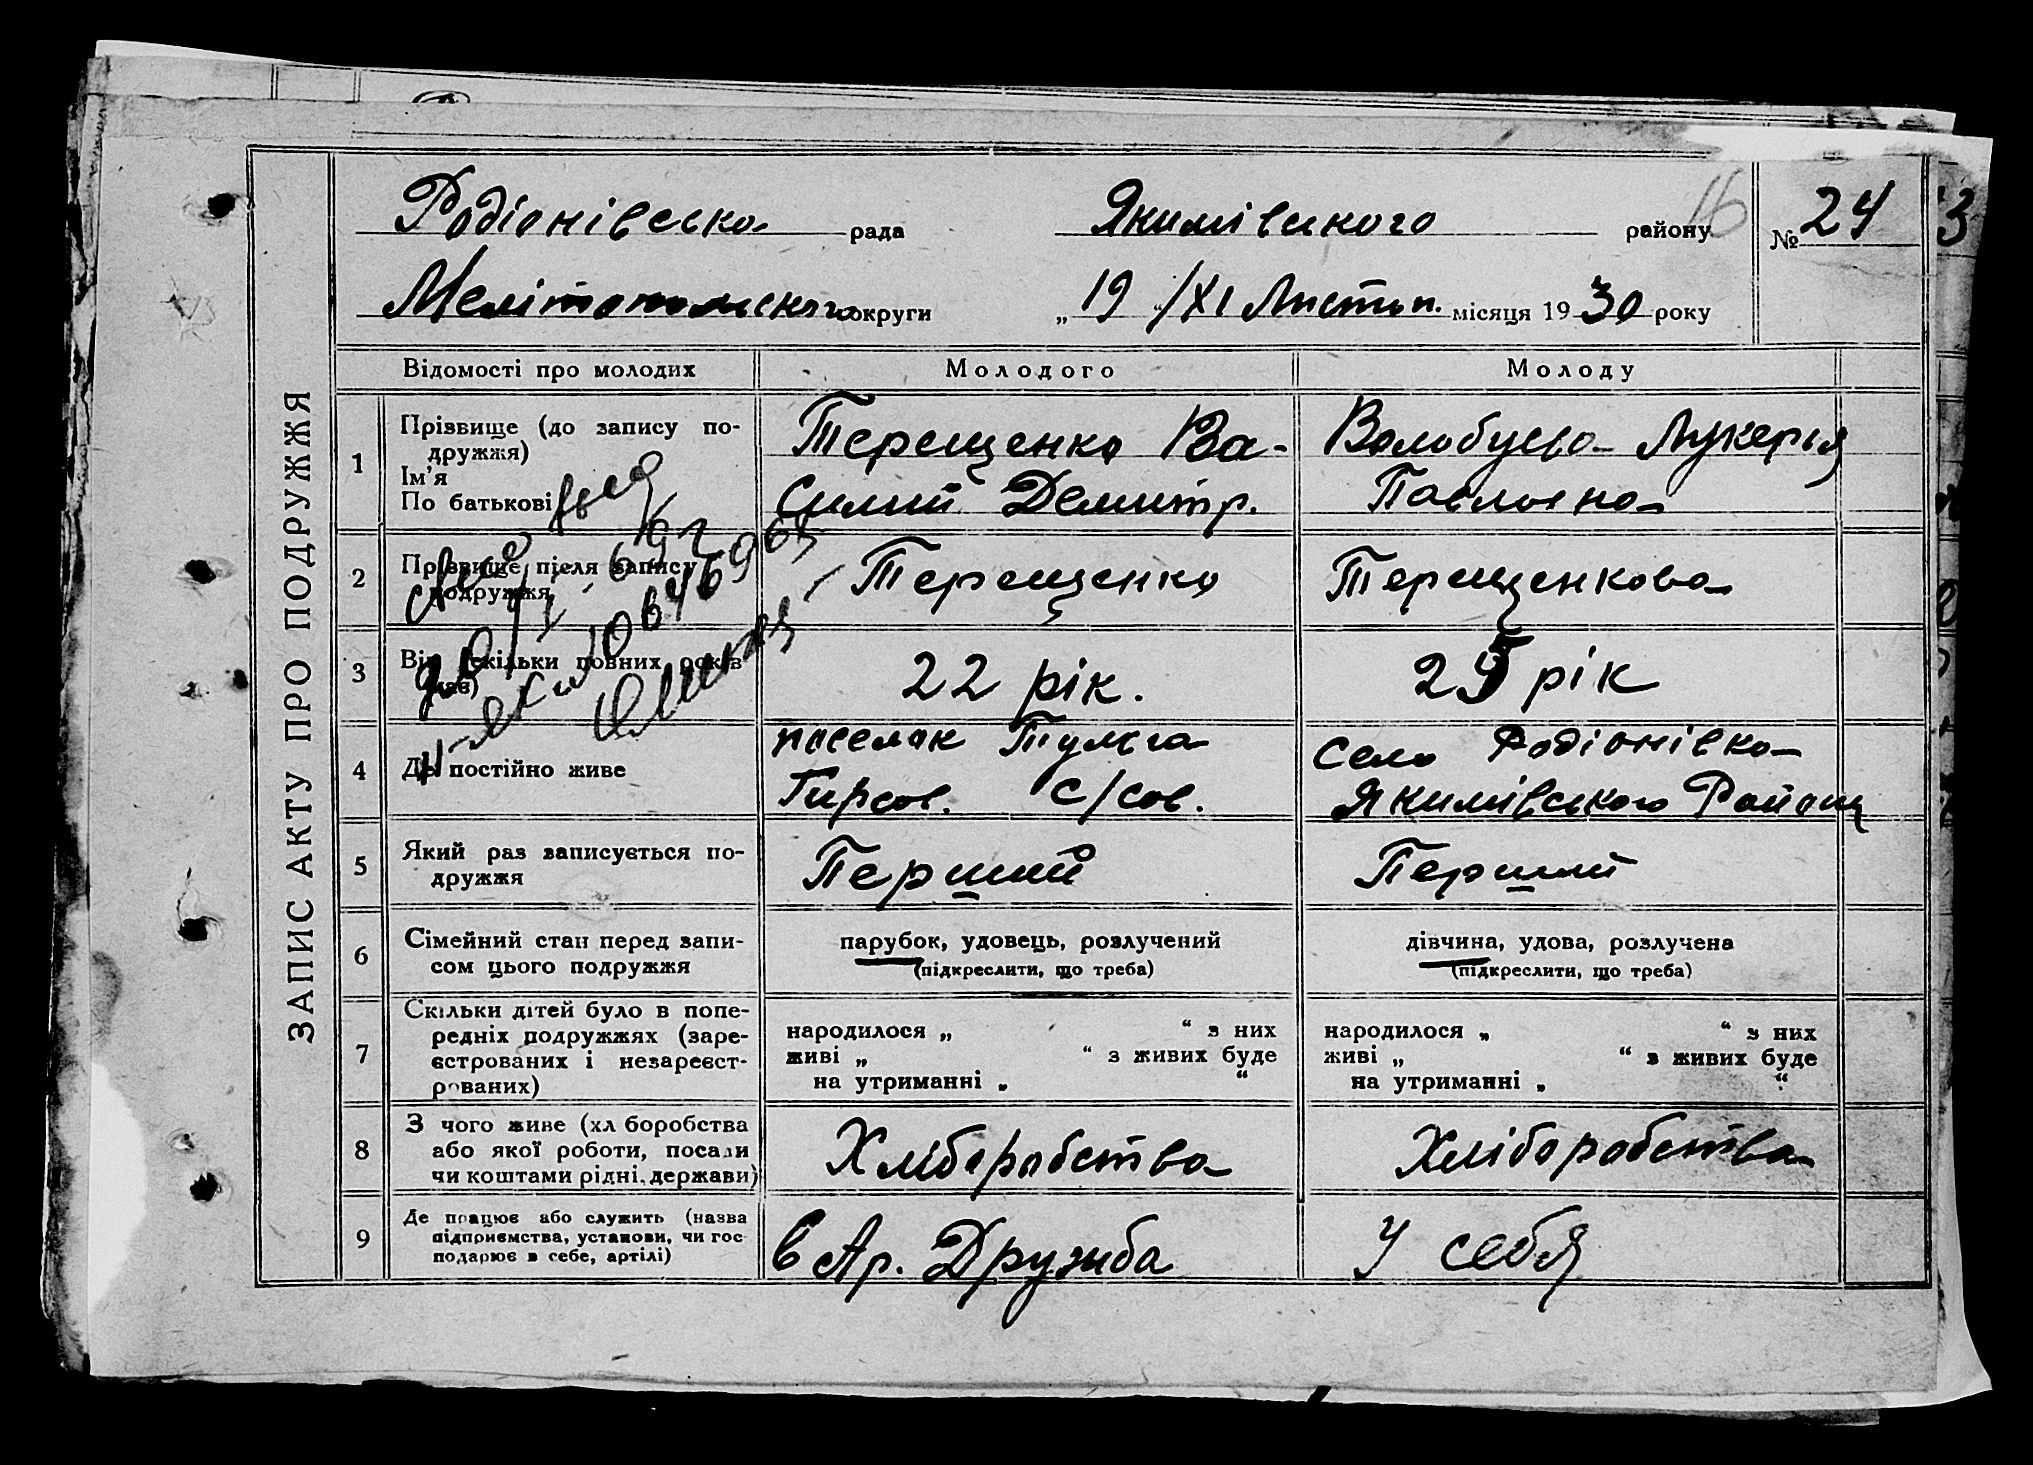 ЗАПИС АКТУ ПРО ПОДРУЖЖЯ
Родіонівська рада Якимівського району № 24
16
Мелітопольського округи „ 19 /XI Листоп. місяця 1930 року
Відомості про молодих Молодого Молоду
1 Прізвище (до запису по-
дружжя)
Ім'я
По батькові
Терещенко Ва-
силий Демитр.
Волобуева Лукерія
Павловна
2 Прізвище після запису
подружжя
Терещенко
Терещенкова
3 Вік (скільки повних років
має)
22 рік.
25 рік
4 Де постійно живе
поселок Тульга
Гирсов. с/сов.
Село Родіонівка
Якимівського Району
5 Який раз записується по-
дружжя
Перший
Перший
6 Сімейний стан перед запи-
сом цього подружжя
парубок, удовець, розлучений
(підкреслити, що треба)
дівчина, удова, розлучена
(підкреслити, що треба)
7 Скільки дітей було в попе-
редніх подружжях (заре-
єстрованих і незареєст-
рованих)
народилося „ “ з них
живі „ “ з живих буде
на утриманні „ “
народилося „ “ з них
живі „ “ з живих буде
на утриманні „ “
8 З чого живе (хл боробства
або якої роботи, посади
чи коштами рідні, держави)
Хліборобства
Хліборобства
9 Де працює або служить (назва
підприємства, установи, чи гос
подарює в себе, артілі)
в Ар. Дружба
У себя